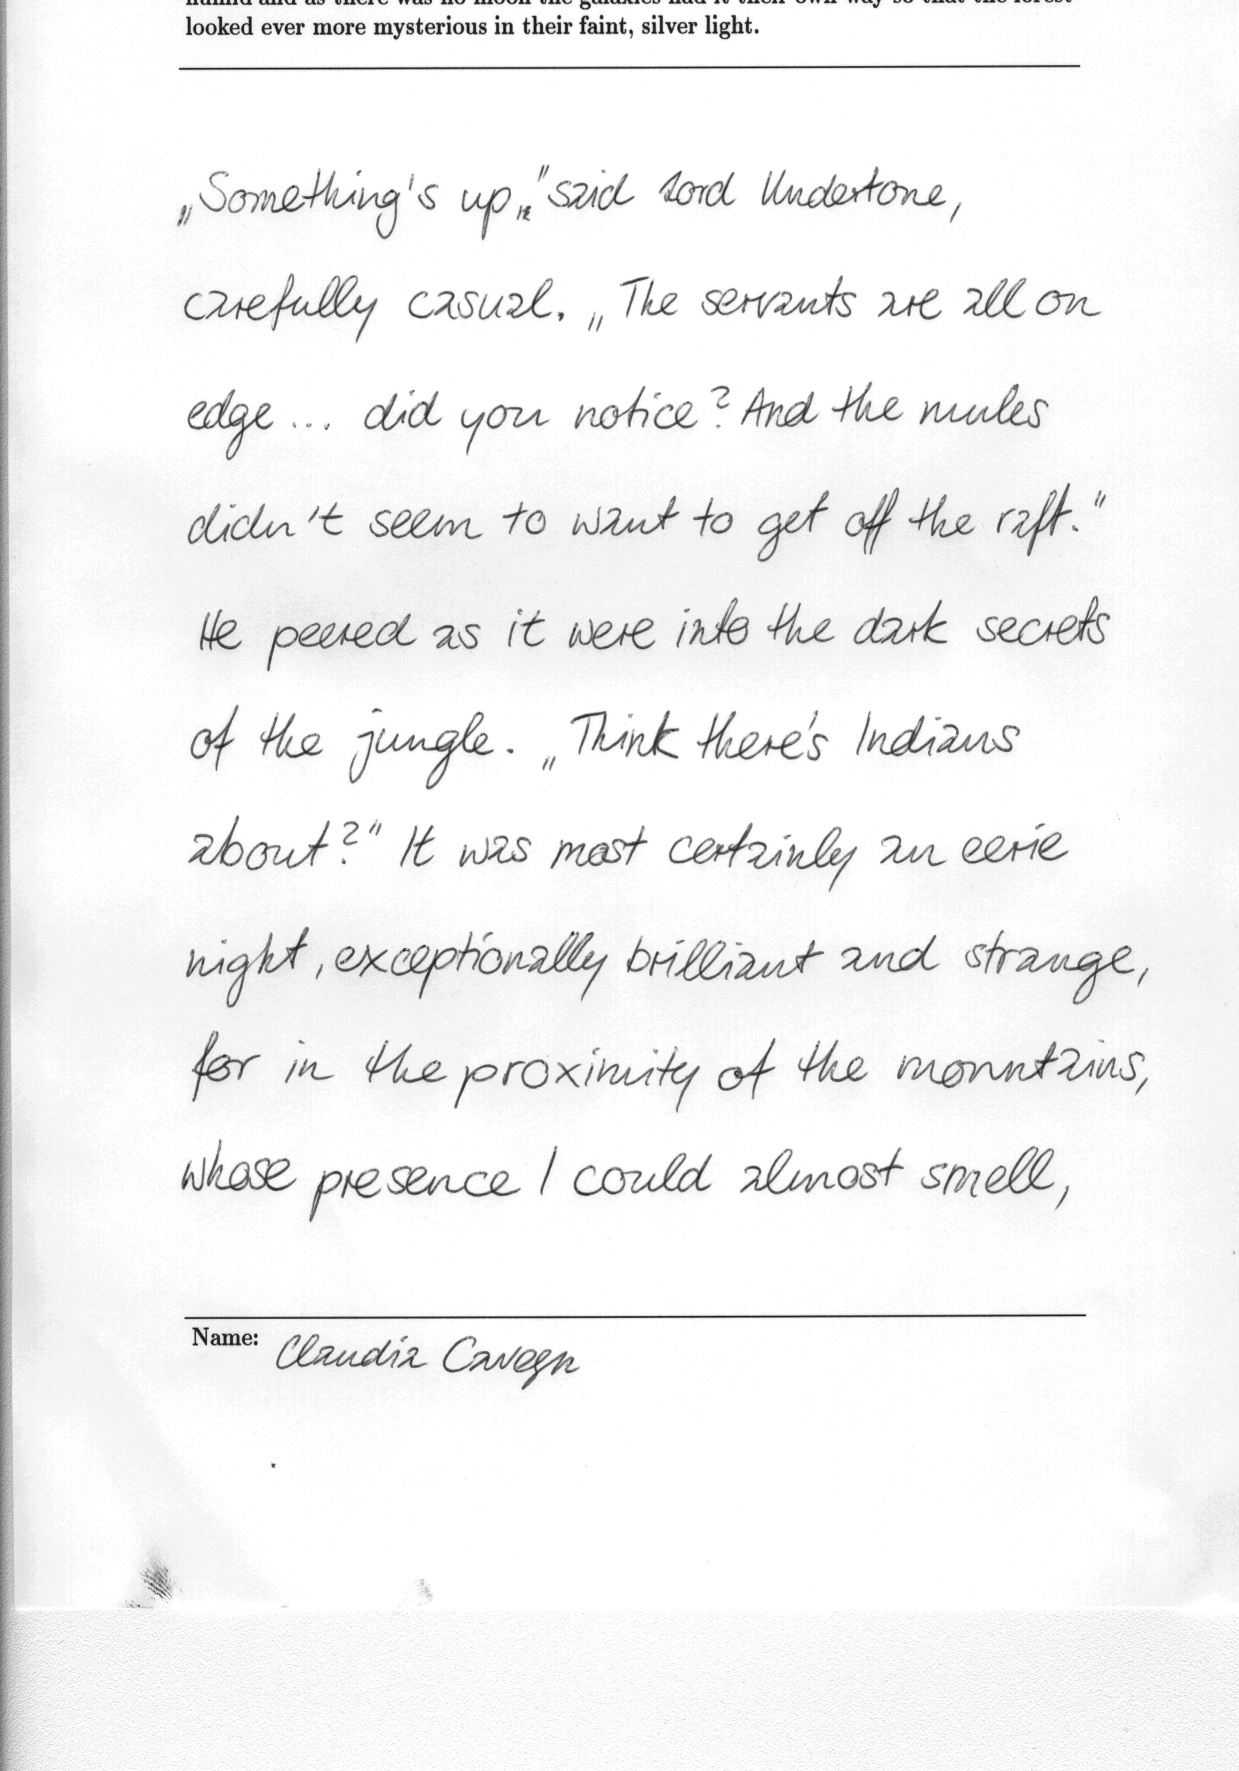 humid and as there was no moon the galaxies had it their own way so that the forest
looked ever more mysterious in their faint, silver light.
„Something's up,“ said Lord Undertone,
carefully casual. „The servants are all on
edge... did you notice? And the mules
didn't seem to want to get off the raft.“
He peered as it were into the dark secrets
of the jungle. „Think there's Indians
about?“ It was most certainly an eerie
night, exceptionally brilliant and strange,
for in the proximity of the mountains,
whose presence I could almost smell,
Name: Claudia Cavegn